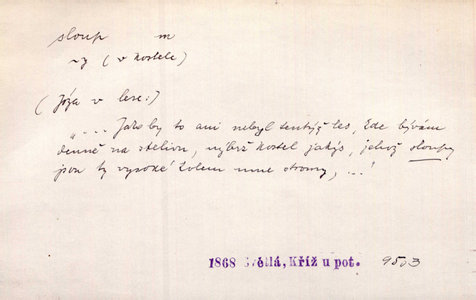 sloup m
~y (v kostele)
(Józa v lese:)
„... Jako by to ani nebyl tentýž les, kde bývám
denně na stelivu, nýbrž kostel jakýs, jehož sloupy
jsou ty vysoké kolem mne stromy, ...'
1868 Světlá, Kříž u pot. 9503